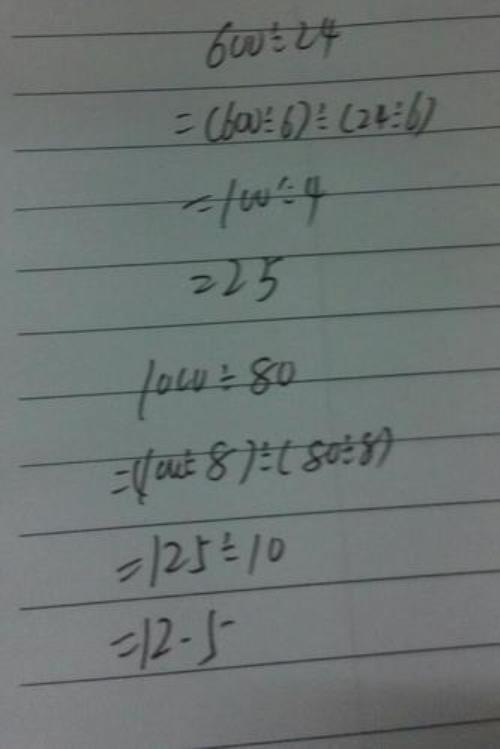 600÷24
=(600÷6)÷(24÷6)
=100÷4
=25
1000÷80
=(1000÷8)÷(80÷8)
=125÷10
=12.5